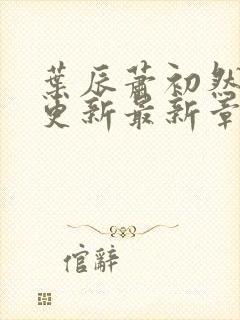 葉辰蕭初然
更新最新章
倌辭